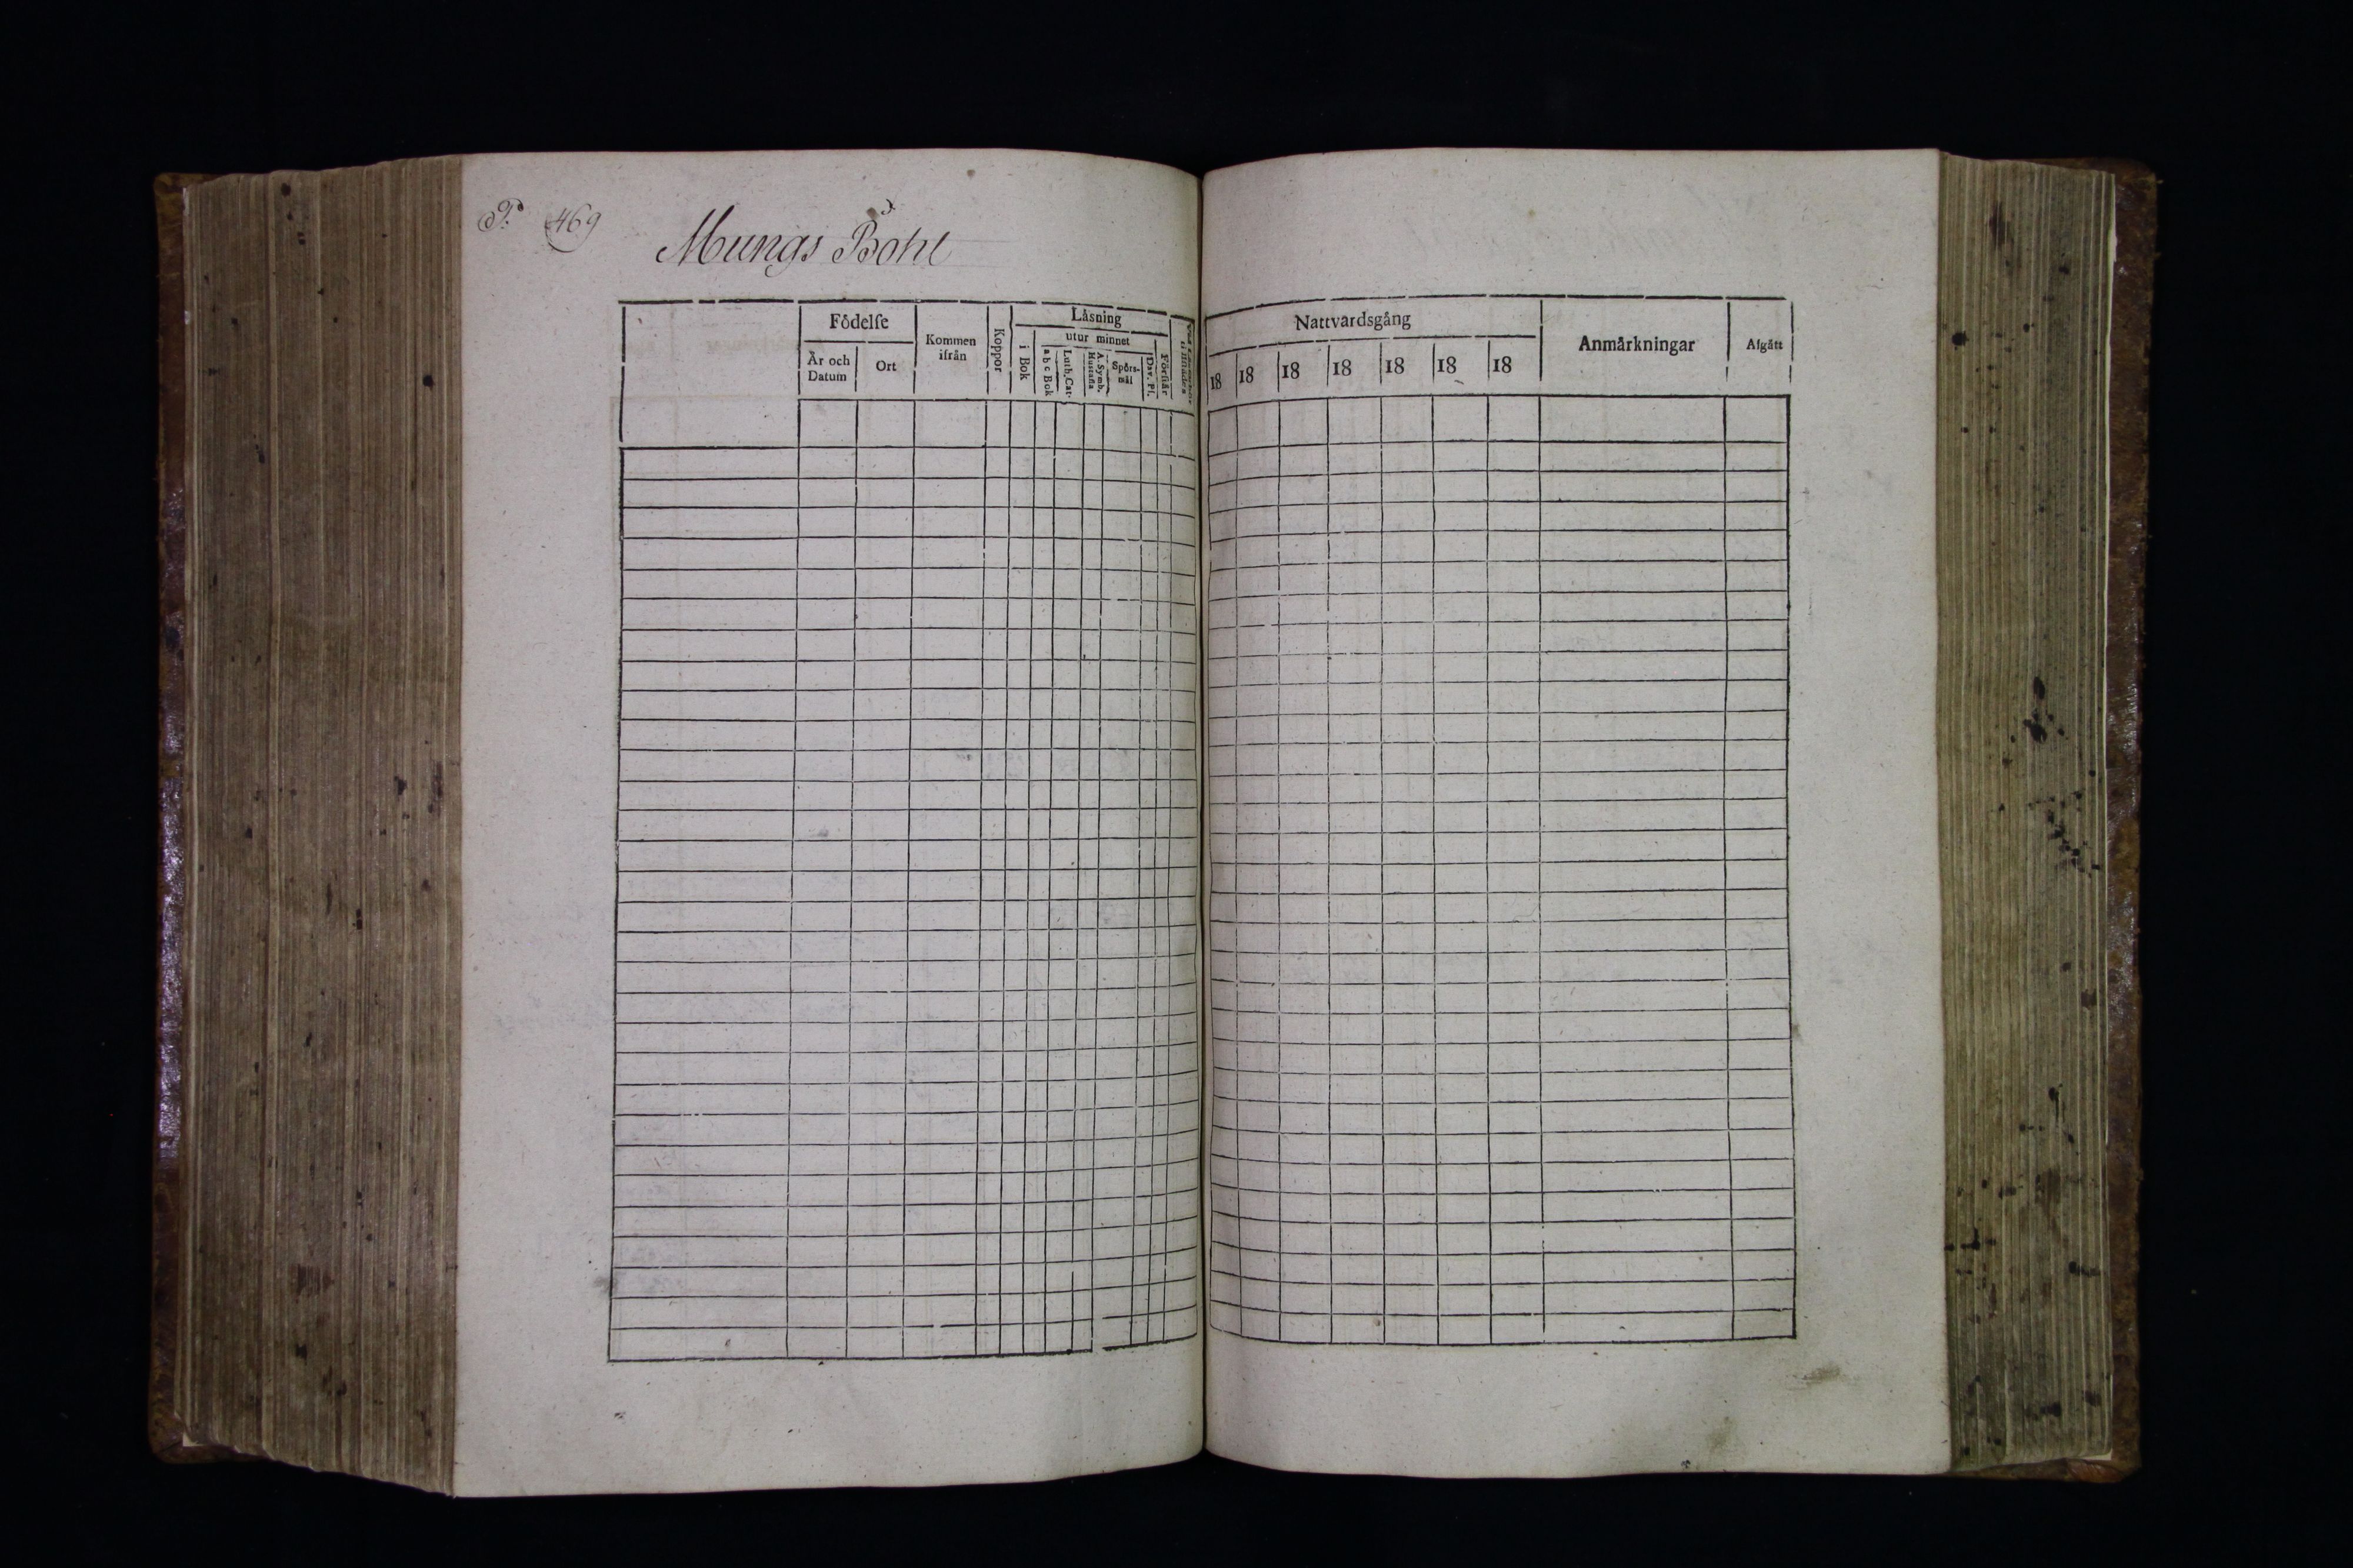 P. 469
Mungs Bohl
Födelse
År och Datum
Ort
Kommen ifrån
Koppor
Läsning
i Bok
utur minnet
a b c Bok
Luth. Cat.
A. Symb. Hustafla
Spörs-mål
Dav. Ps.
Förstår
Nattvardsgång
18 18 18 18 18 18 18
Anmärkningar
Afgått